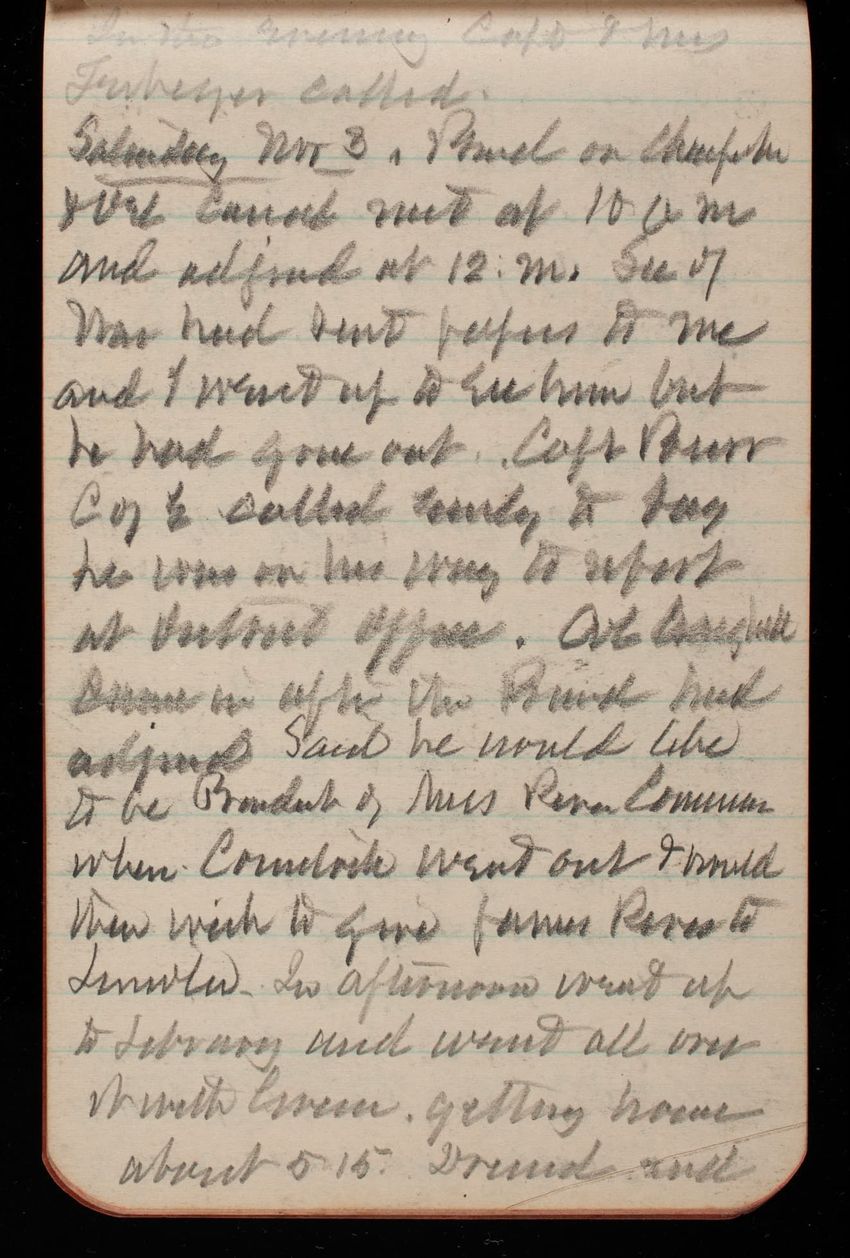 In the evening Capt & Mrs
called.
Saturday Nov 3. Board on Chesapeke
& Del Canal met at 10 a m
and adjrnd at 12. m. Sec of
War had sent papers to me
and I went up to see him but
he had gone out. Capt
C of E called early to day
he was on his way to report
at District Office. Col Craighill
came in after the Board had
adjrnd Said he would like
to be Presdent of Miss River Commsn
when Comstock went out & would
then wish to give James River to
In afternoon went up
to Library and went all over
it with Green. getting home
about 5 15. and